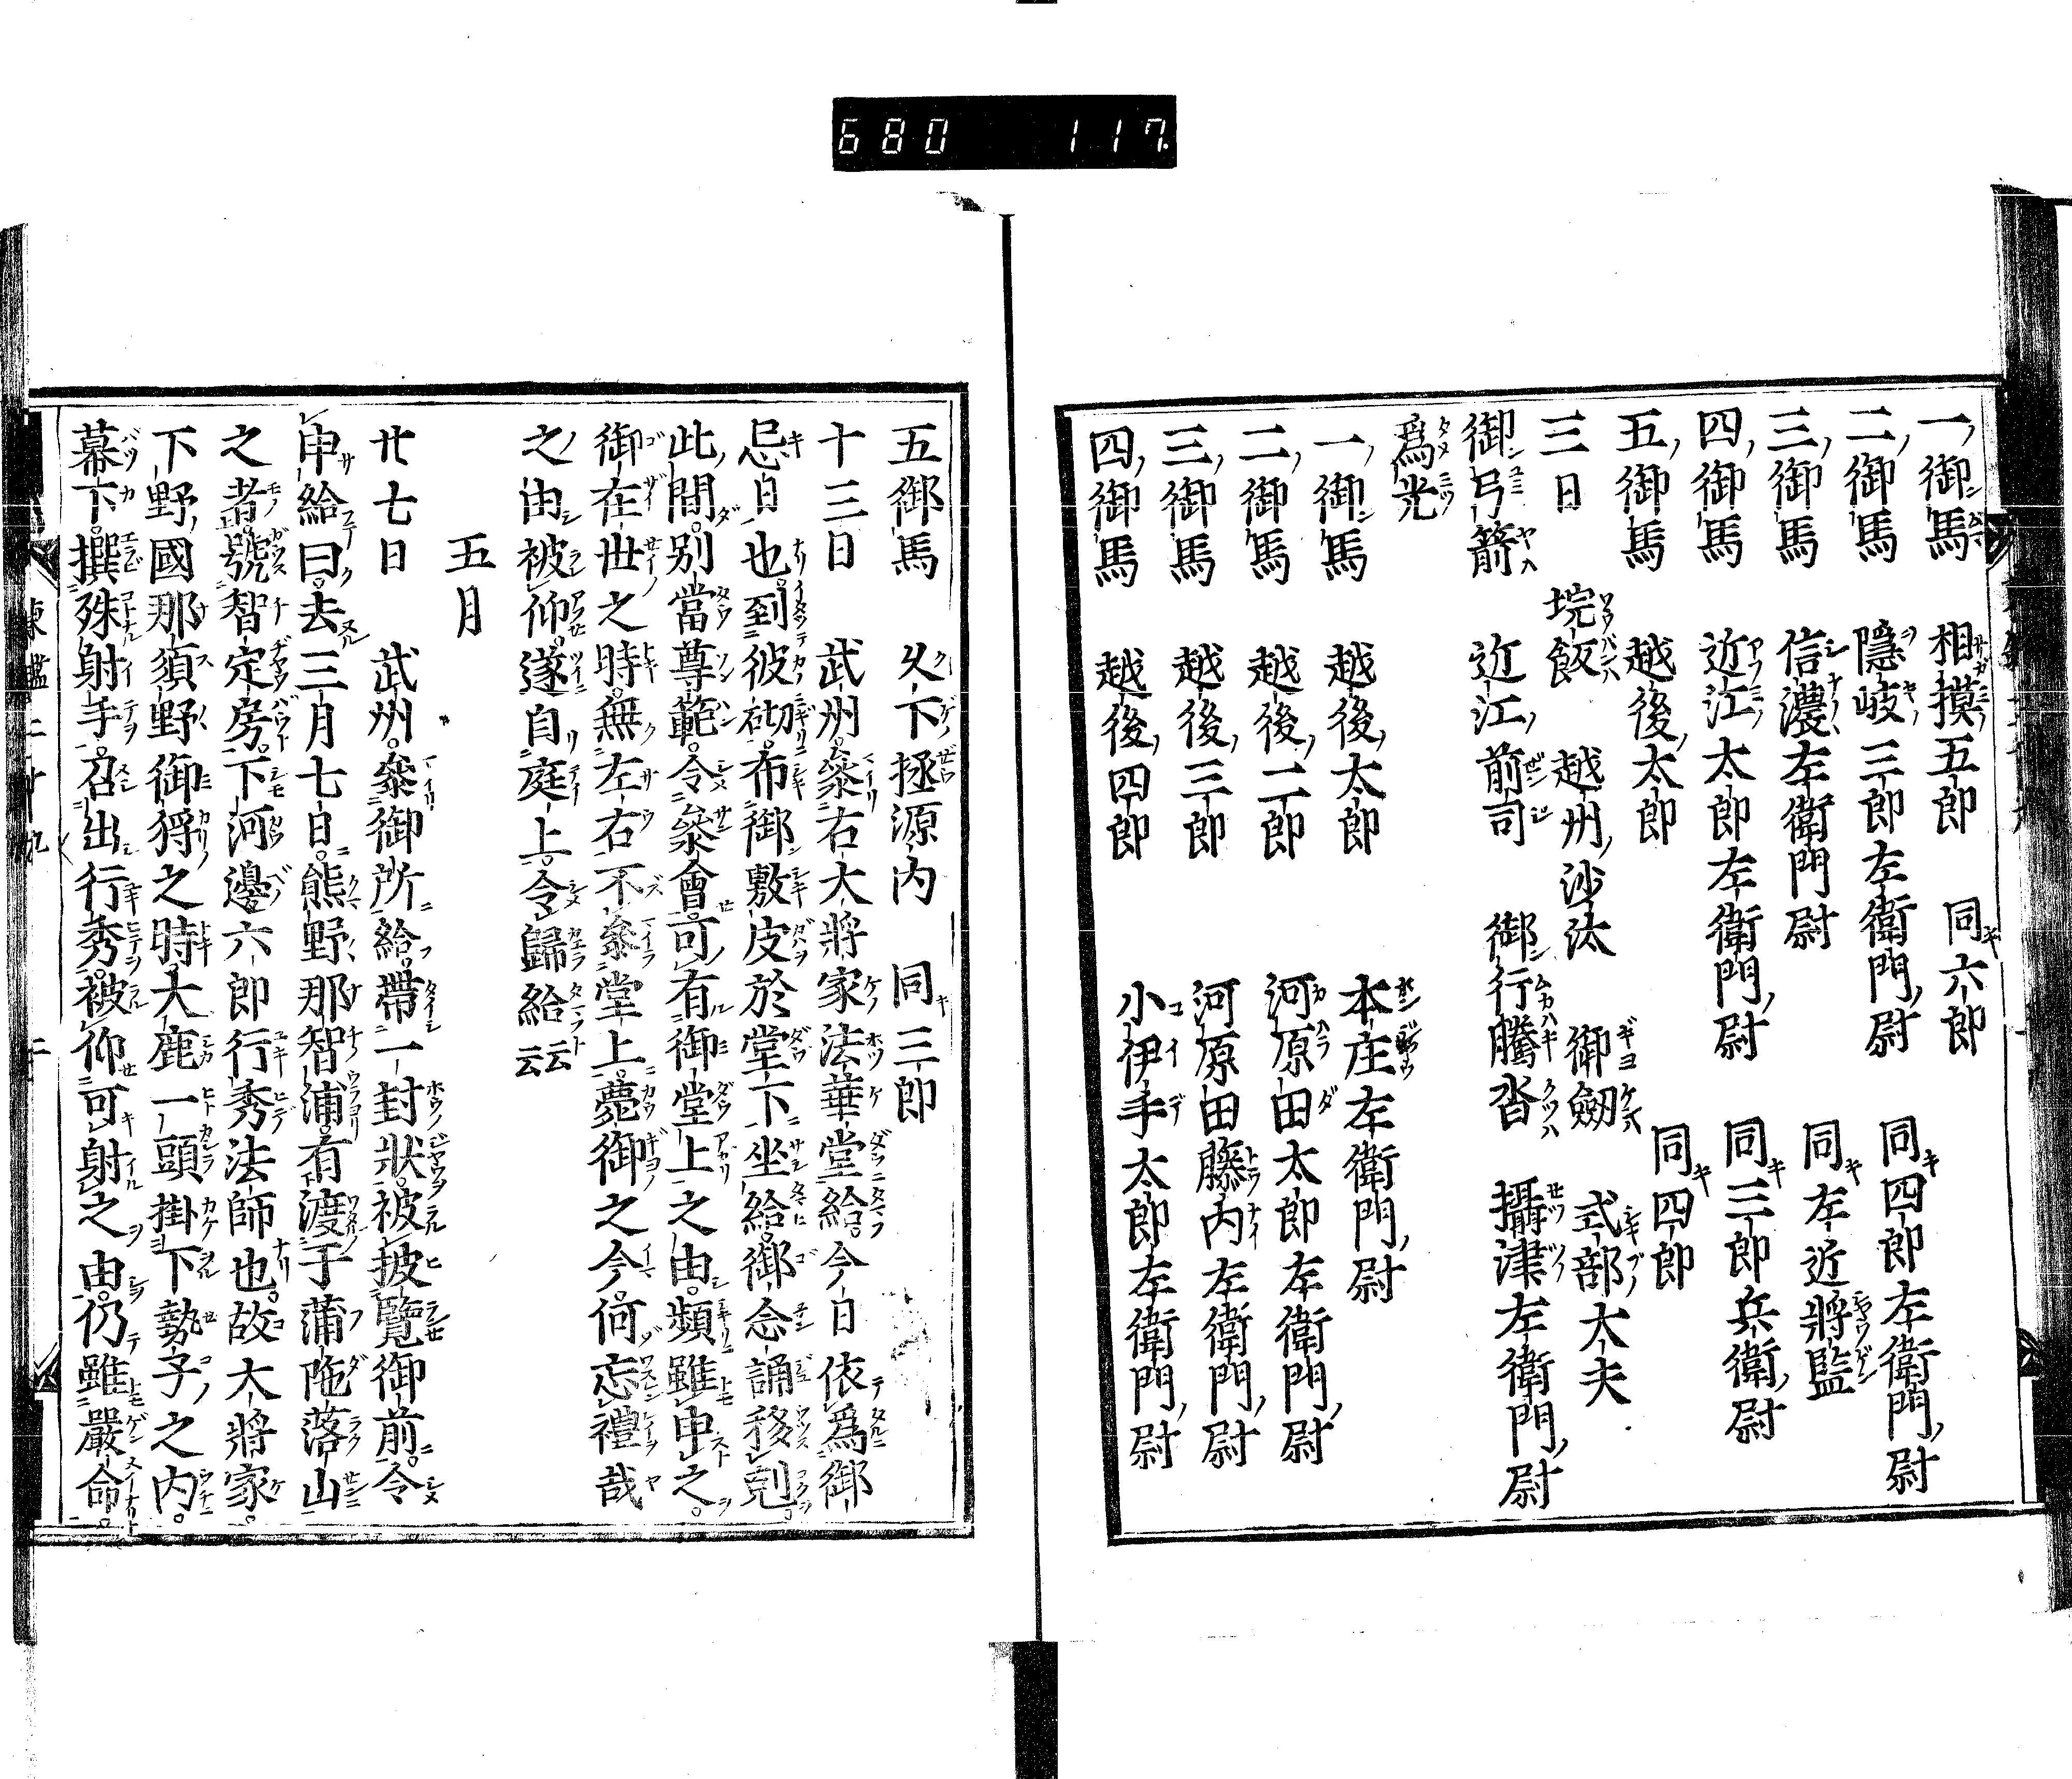 680 117
一御馬 相摸五郎 同六郎
二御馬 隱岐三郎左衛門尉 同四郎左衛門尉
三御馬 信濃左衛門尉 同左近將監
四御馬 近江太郎左衛門尉 同三郎兵衛尉
五御馬 越後太郎 同四郎
三日 垸飯 越州沙汰 御劔 式部大夫
御弓箭 近江前司 御行騰沓 攝津左衛門尉
爲光
一御馬 越後太郎 本庄左衛門尉
二御馬 越後二郎 河原田太郎左衛門尉
三御馬 越後三郎 河原田藤内左衛門尉
四御馬 越後四郎 小伊手太郎左衛門尉
五御馬 久下拯源内 同三郎
十三日 武州參右大將家法華堂給今日依爲御
忌日也到彼砌布御敷皮於堂下坐給御念誦移剋
此間別當尊範令參會可有御堂上之由頻雖申之
御在世之時無左右不參堂上薨御之今何忘禮哉
之由被仰遂自庭上令歸給云云
五月
廿七日 武州參御所給帶一封狀被披覽御前令
申給曰去三月七日熊野那智浦有渡于蒲陁落山
之者號智定房下河邊六郎行秀法師也故大將家
下野國那須野御狩之時大鹿一頭掛下勢子之内
幕下撰殊射手召出行秀被仰可射之由仍雖嚴命
東鑑二十九 二